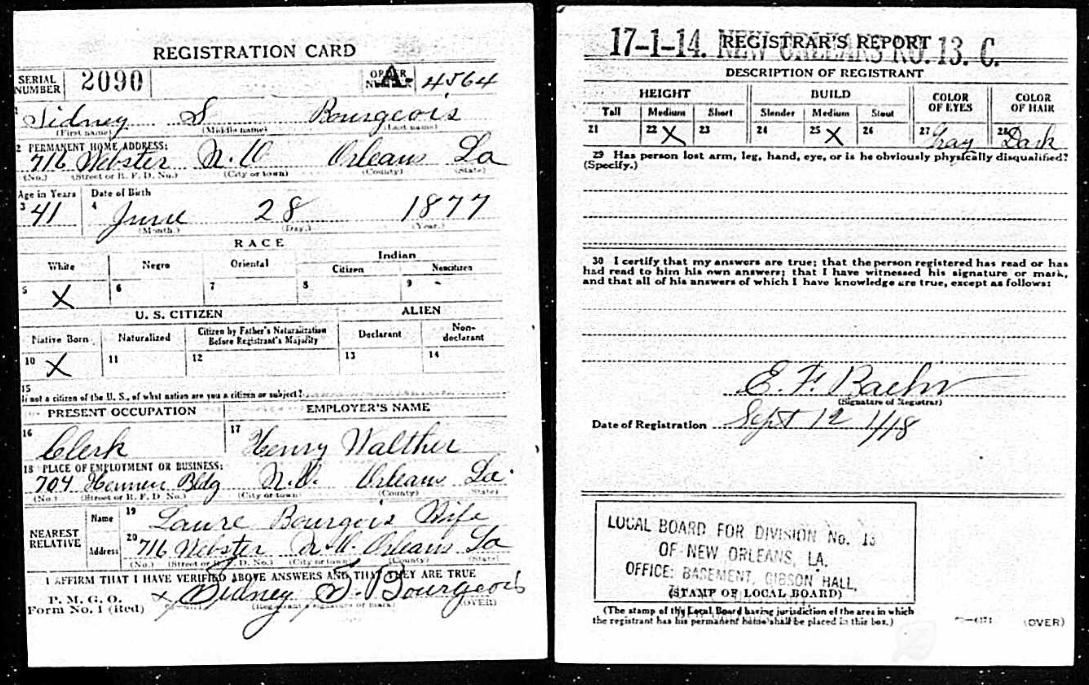 REGISTRATION CARD
SERIAL NUMBER 2090 ORDER NUMBER A- 4564
1 Sidney S Bourgeois
(First name) (Middle name) (Last name)
2 PERMANENT HOME ADDRESS:
716 Webster N.O Orleans La
(No.) (Street or R. F. D. No.) (City or town) (County) (State)
Age in Years Date of Birth
3 41 4 June 28 1877
(Month.) (Day.) (Year.)
RACE
White Negro Oriental Indian
Citizen Noncitizen
5 X 6 7 8 9
U. S. CITIZEN ALIEN
Native Born Naturalized Citizen by Father's Naturalization Before Registrant's Majority Declarant Non-declarant
10 X 11 12 13 14
15
If not a citizen of the U. S., of what nation are you a citizen or subject?
PRESENT OCCUPATION EMPLOYER'S NAME
16 Clerk 17 Henry Walther
18 PLACE OF EMPLOYMENT OR BUSINESS:
704 Hennen Bldg N.O. Orleans La
(No.) (Street or R. F. D. No.) (City or town) (County) (State)
NEAREST RELATIVE Name 19 Laure Bourgeois Wife
Address 20 716 Webster N.O. Orleans La
(No.) (Street or R. F. D. No.) (City or town) (County) (State)
I AFFIRM THAT I HAVE VERIFIED ABOVE ANSWERS AND THAT THEY ARE TRUE
P. M. G. O.
Form No. 1 (Red) x Sidney S. Bourgeois
(Registrant's signature or mark) (OVER)
17-1-14. NEW ORLEANS NO. 13. C.
REGISTRAR'S REPORT
DESCRIPTION OF REGISTRANT
HEIGHT BUILD COLOR OF EYES COLOR OF HAIR
Tall Medium Short Slender Medium Stout
21 22 X 23 24 25 X 26 27 Gray 28 Dark
29 Has person lost arm, leg, hand, eye, or is he obviously physically disqualified?
(Specify.)
30 I certify that my answers are true; that the person registered has read or has
had read to him his own answers; that I have witnessed his signature or mark,
and that all of his answers of which I have knowledge are true, except as follows:
E. F. Baehr
(Signature of Registrar)
Date of Registration Sept 12 1/18
LOCAL BOARD FOR DIVISION No. 13
OF NEW ORLEANS, LA.
OFFICE: BASEMENT, GIBSON HALL,
(STAMP OF LOCAL BOARD)
(The stamp of the Local Board having jurisdiction of the area in which
the registrant has his permanent home shall be placed in this box.)
(OVER)